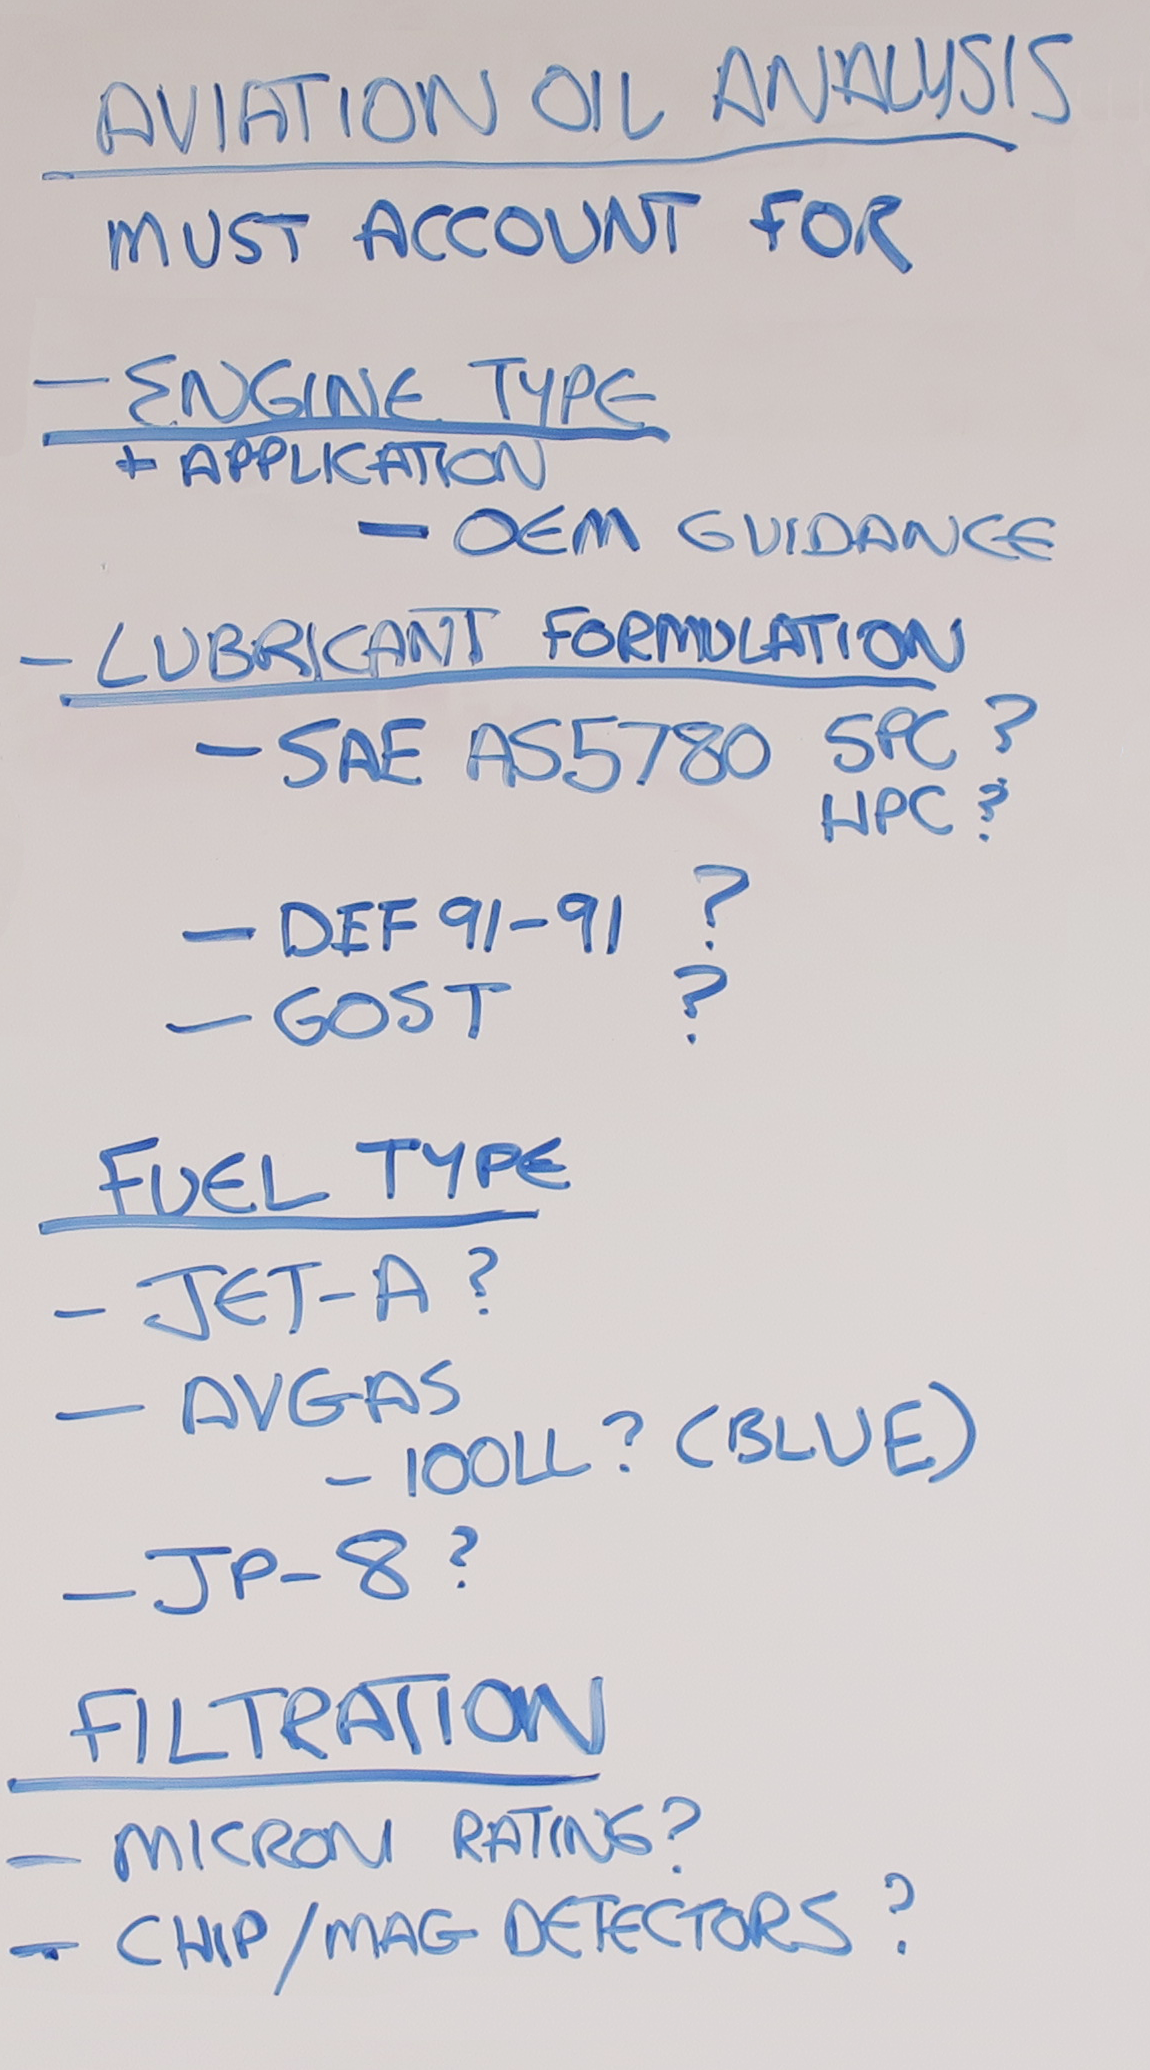 AVIATION OIL ANALYSIS
MUST ACCOUNT FOR
- ENGINE TYPE
+ APPLICATION
- OEM GUIDANCE
- LUBRICANT FORMULATION
- SAE AS5780 SPC?
HPC?
- DEF 91-91 ?
- GOST ?
FUEL TYPE
- JET-A ?
- AVGAS
- 100LL ? (BLUE)
- JP-8 ?
FILTRATION
- MICRON RATING?
- CHIP/MAG DETECTORS ?